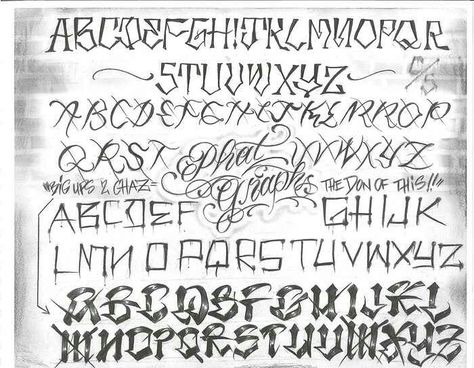 ABCDEFGHIJKLMNOPQR
STUVWXYZ
C/S
ABCDEFGHIJKLMNOP
QRST Phat UVWXYZ
"BIG UPS 2 CHAZ= Graphs THE DON OF THIS!!"
ABCDEF GHIJK
LMNOPQRSTUVWXYZ
ABCDEFGHIJKL
MNOPQRSTUVWXYZ